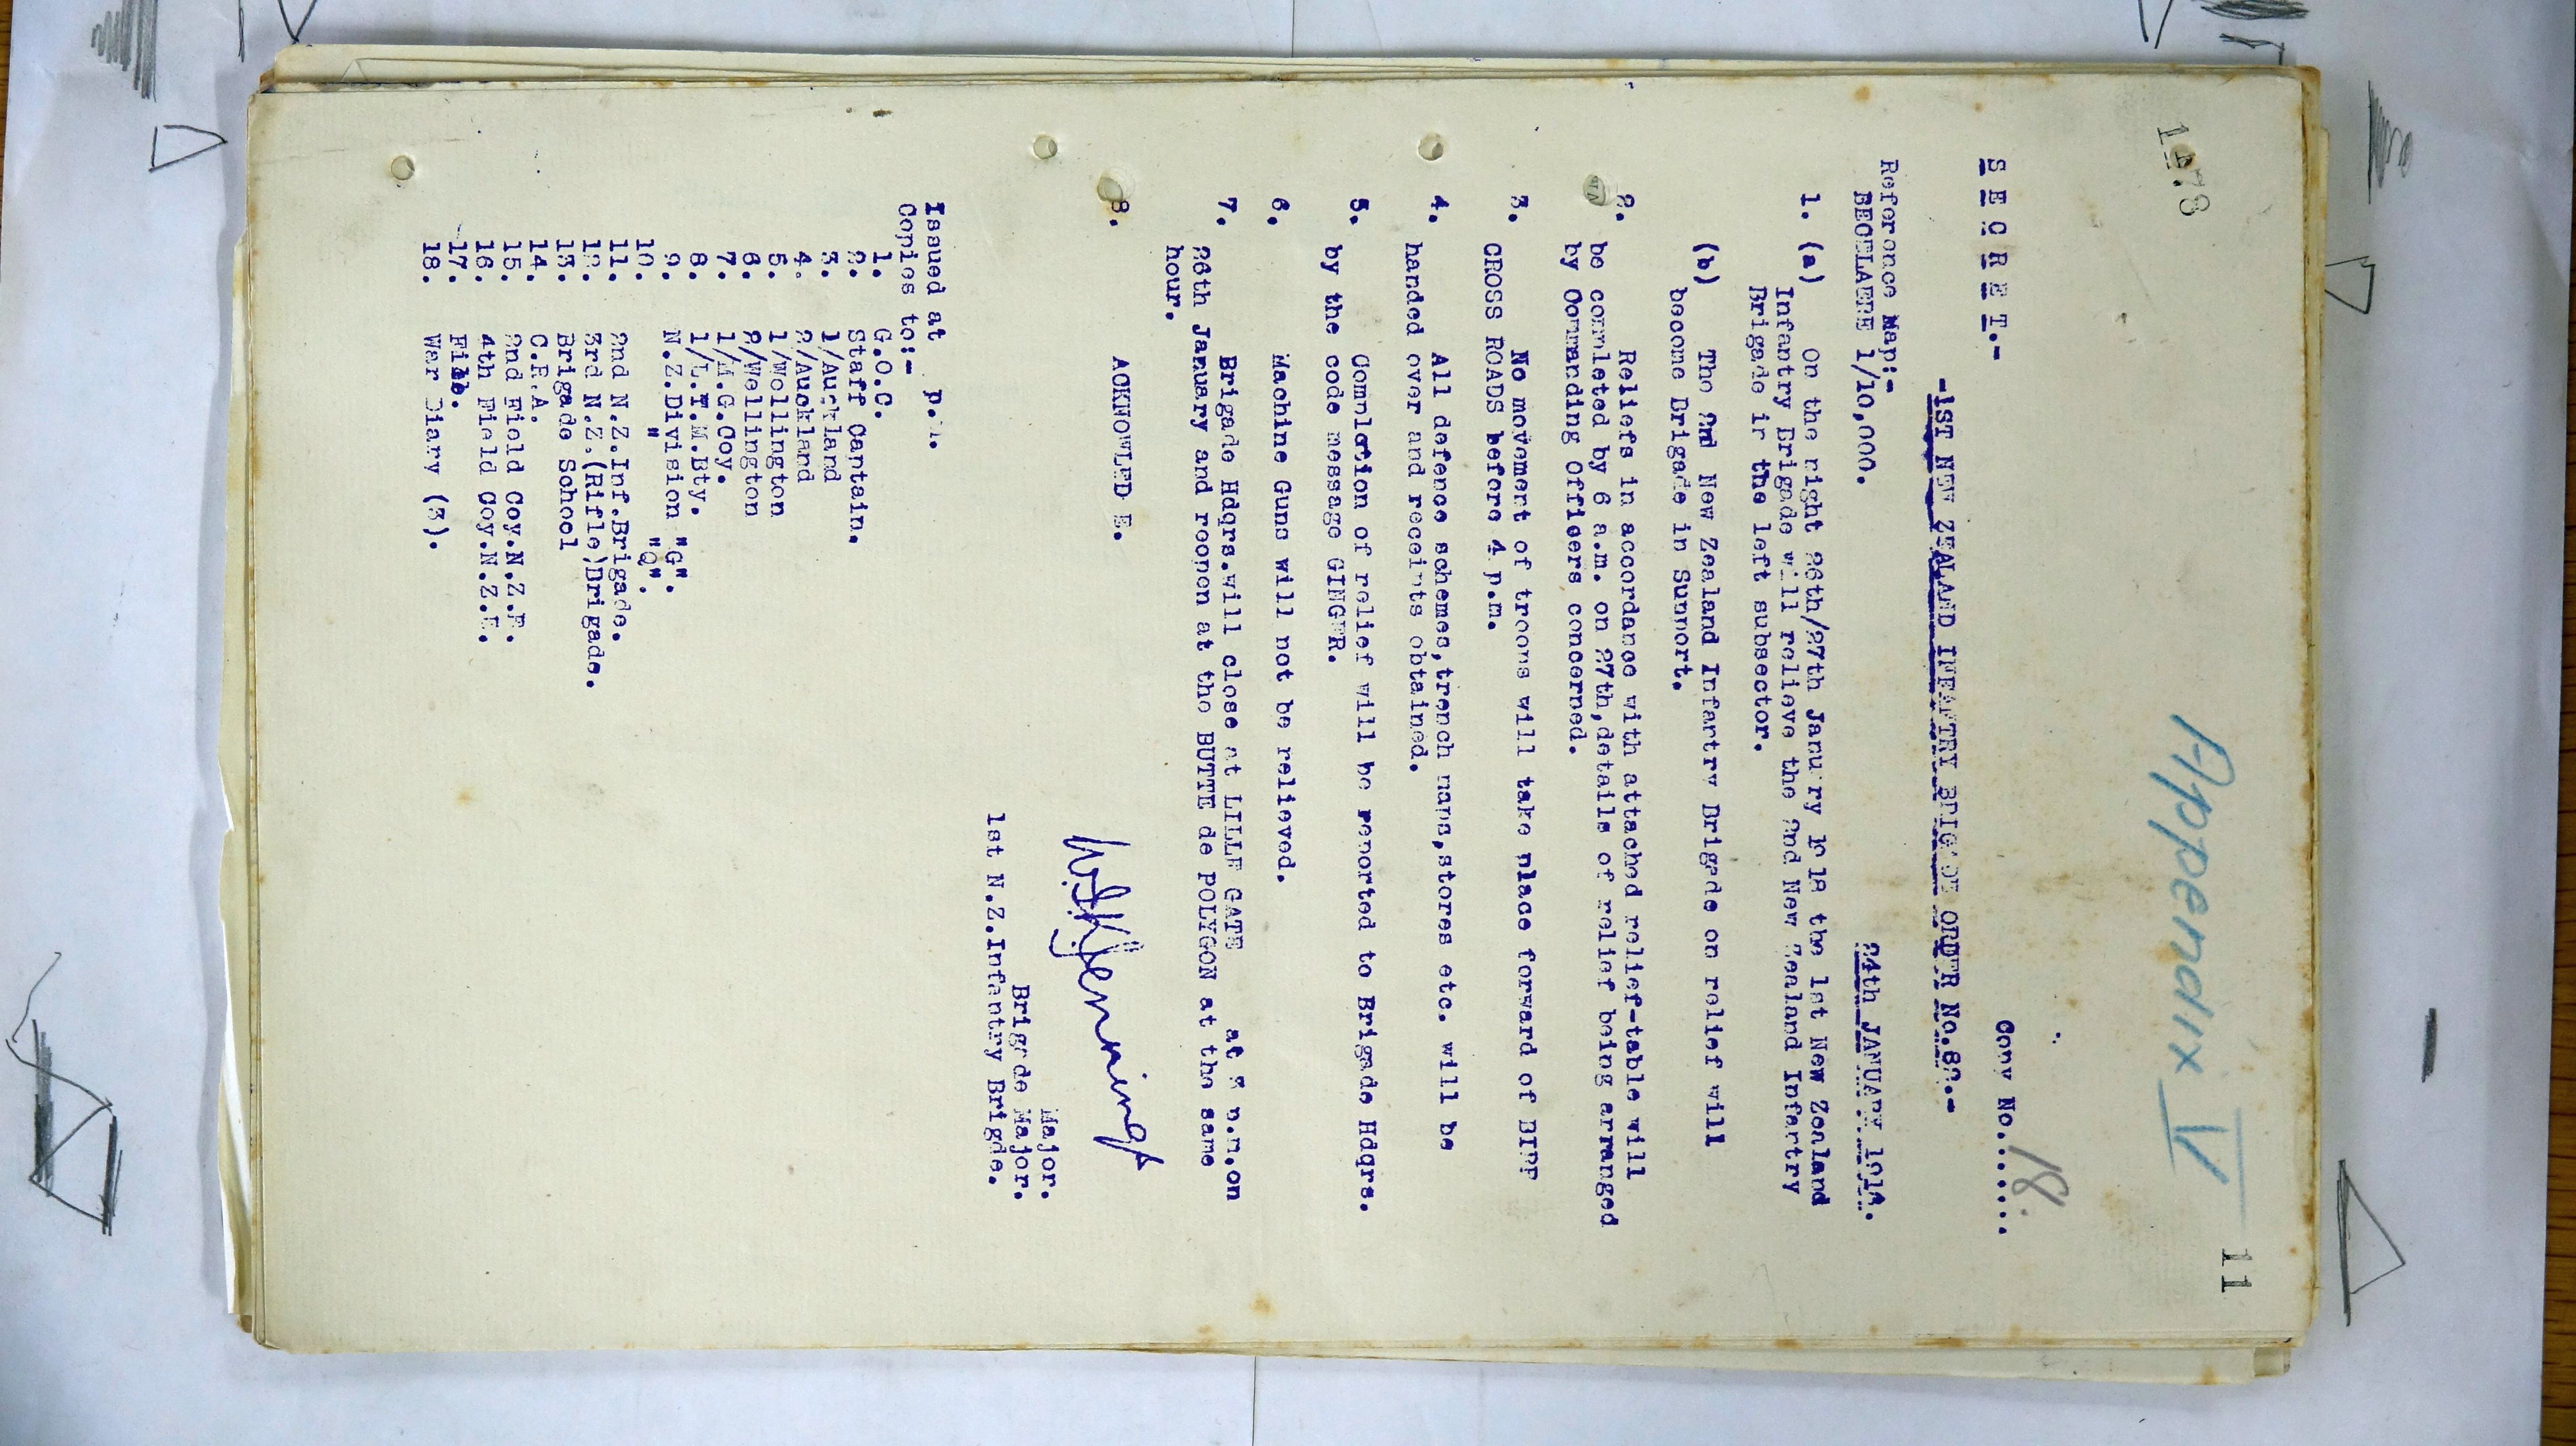 1478
Appendix V
11
S E C R E T.-
Copy No. 18.
-1ST NEW ZEALAND INFANTRY BRIGADE ORDER
Reference Map:-
24th JANUARY 1918.
BECELAERE 1/10,000.
1. (a) On the night 26th/27th January 1918 the 1st New Zealand
Infantry Brigade will relieve the 2nd New Zealand Infantry
Brigade in the left subsector.
(b) The 2nd New Zealand Infantry Brigade on relief will
become Brigade in Support.
2. Reliefs in accordance with attached relief-table will
be completed by 6 a.m. on 27th,details of relief being arranged
by Commanding Officers concerned.
3. No movement of troops will take place forward of BIRR
CROSS ROADS before 4 p.m.
4. All defence schemes,trench maps,stores etc. will be
handed over and receipts obtained.
5. Completion of relief will be reported to Brigade Hdqrs.
by the code message GINGER.
6. Machine Guns will not be relieved.
7. Brigade Hdqrs.will close at LILLE GATE at p.m.on
26th January and reopen at the BUTTE de POLYGON at the same
hour.
8. ACKNOWLED E.
Jennings
Major.
Brigade Major.
1st N.Z.Infantry Brigde.
Issued at p.m.
Copies to:-
1. G.O.C.
2. Staff Captain.
3. 1/Auckland
4. 2/Auckland
5. 1/Wellington
6. 2/Wellington
7. 1/M.G.Coy.
8. 1/L.T.M.Bty.
9. N.Z.Division "G".
10. " "Q".
11. 2nd N.Z.Inf.Brigade.
12. 3rd N.Z.(Rifle)Brigade.
13. Brigade School
14. C.R.A.
15. 2nd Field Coy.N.Z.E.
16. 4th Field Coy.N.Z.E.
17. File.
18. War Diary (3).